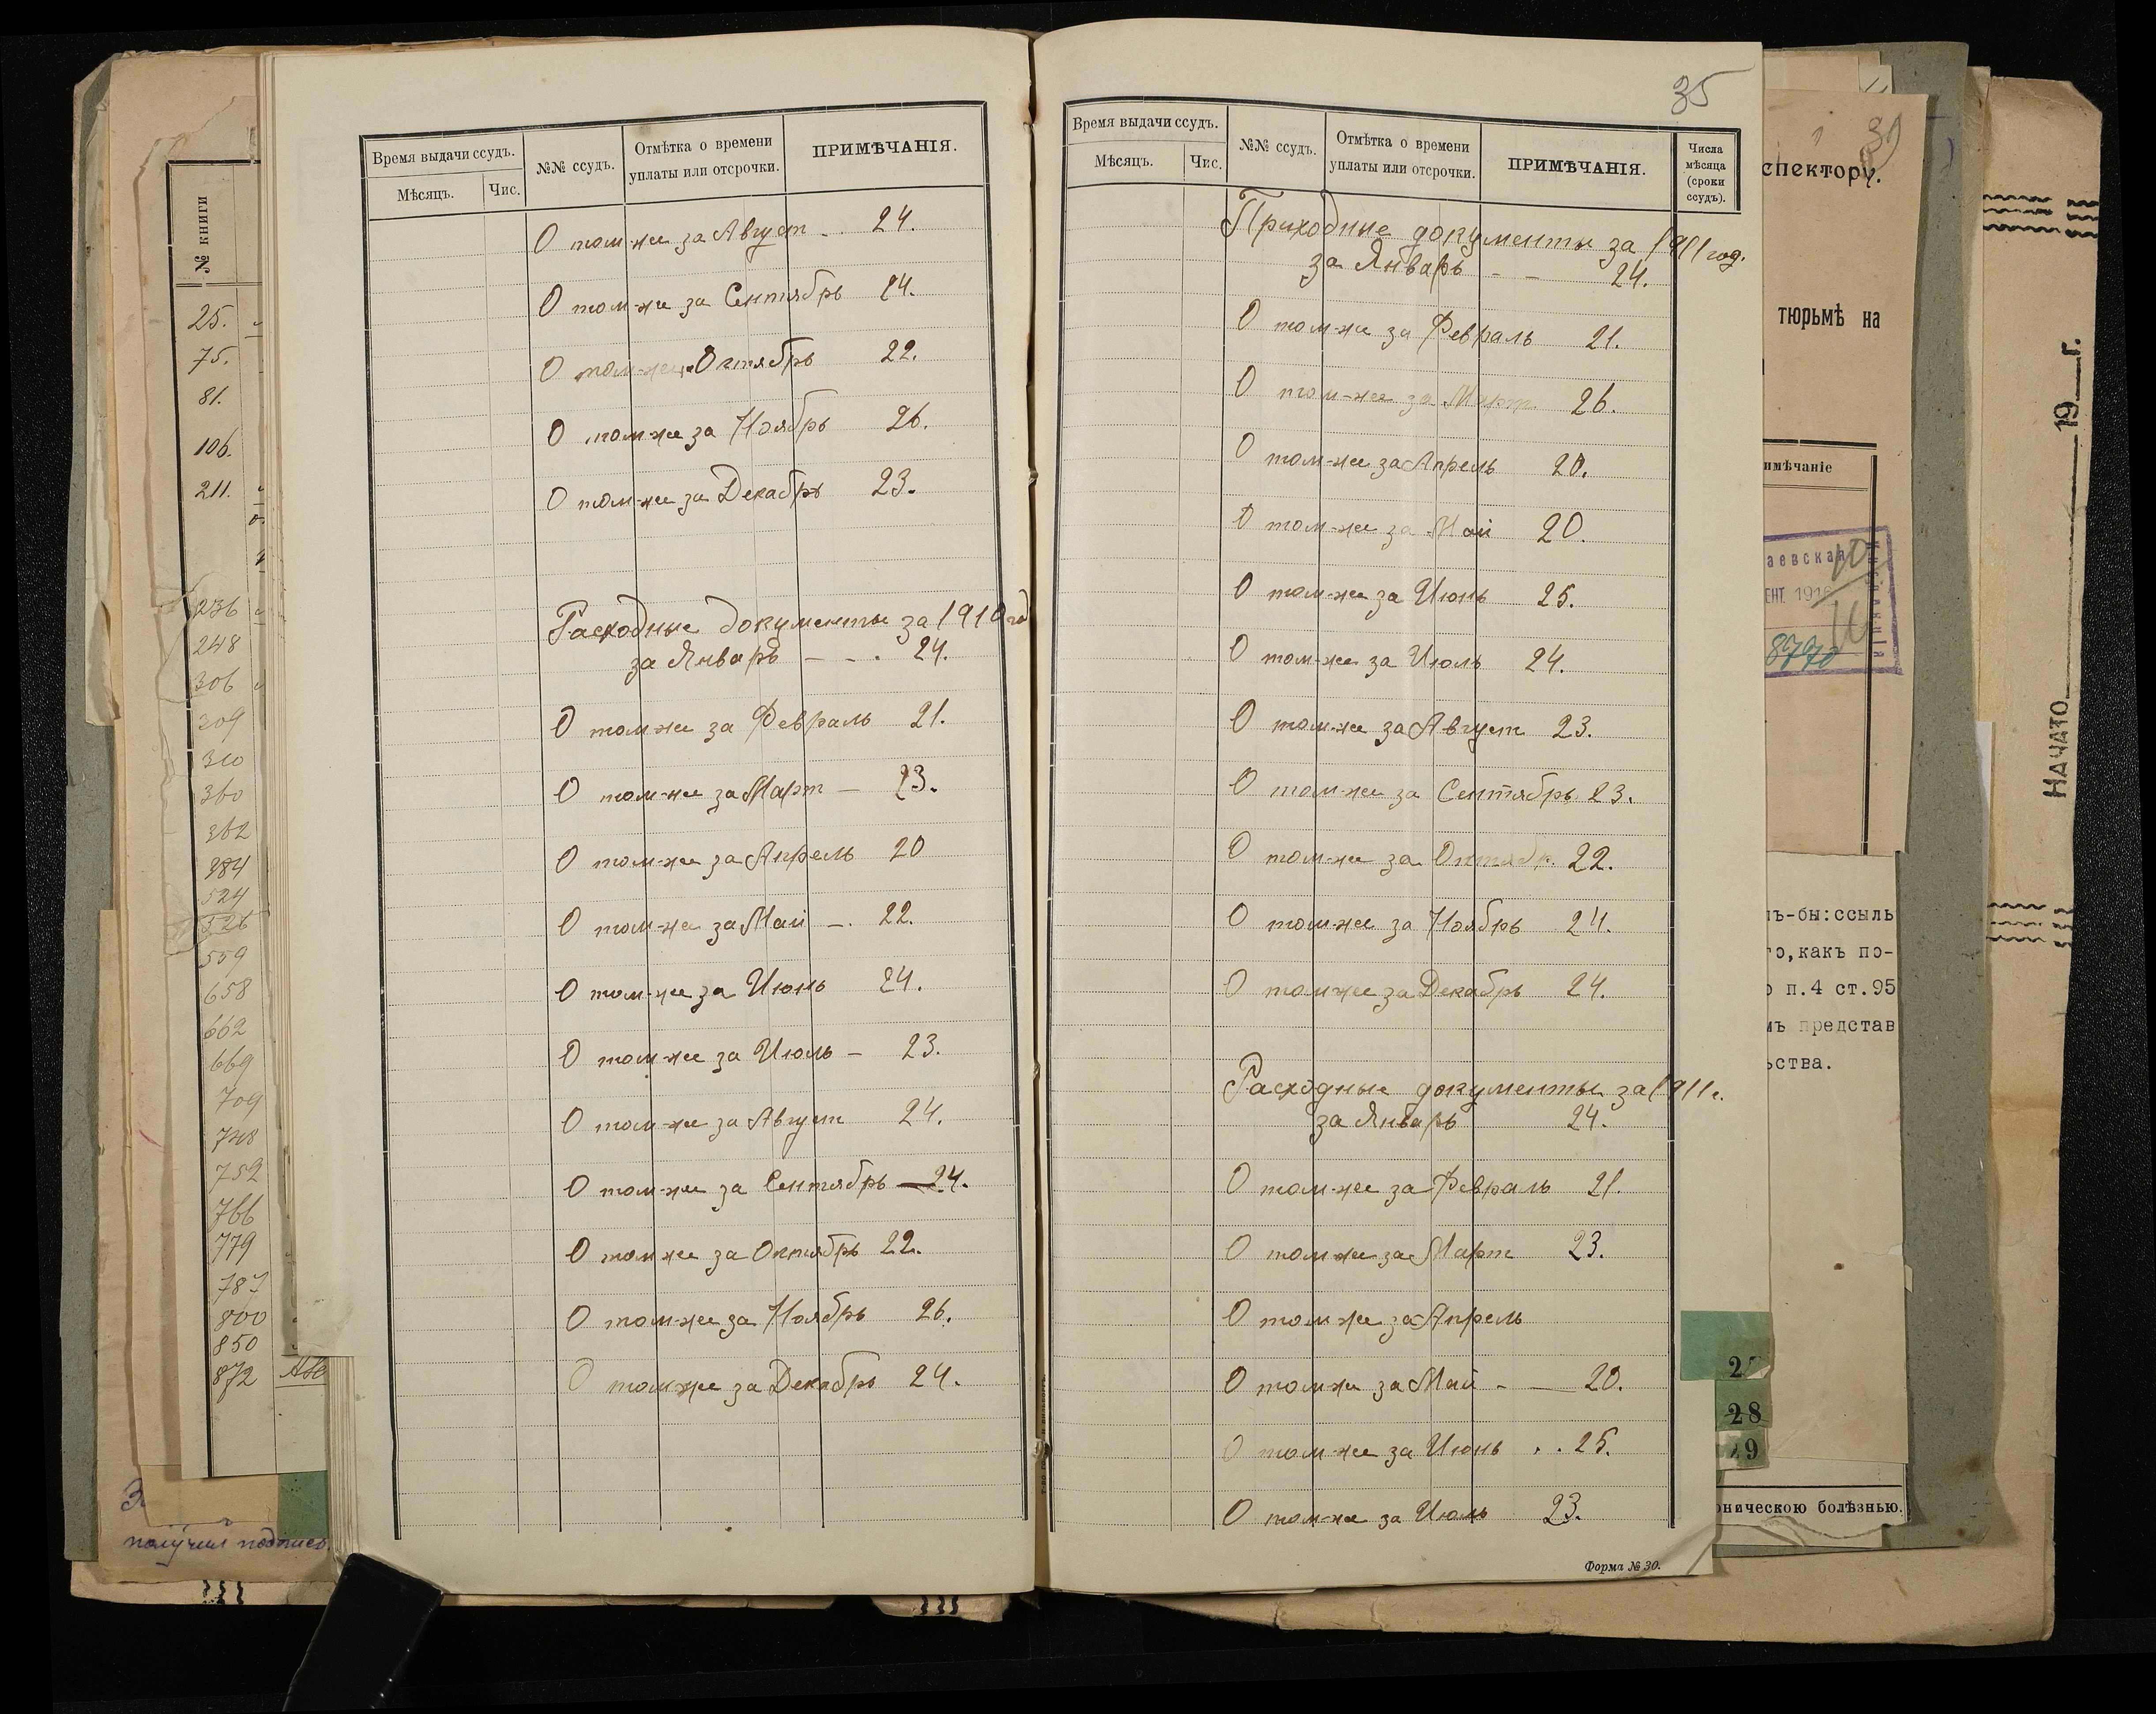 № книги
25.
75.
81.
106.
211.
236
248
306
309
310
360
362
384
524
526
559
658
662
669
709
748
759
766
779
787
800
850
872
получил подпись.
Время выдачи ссудъ.
Мѣсяцъ.
Чис.
№№ ссудъ.
Отмѣтка о времени
уплаты или отсрочки.
ПРИМѢЧАНІЯ.
О том-же за Август - . 24.
О том-же за Сентябрь 24.
О том-же Октябрь 22.
О том же за Ноябрь 26.
О том-же за Декабрь 23.
Расходные документы за 1910 год
за Январь - - . 24.
О том-же за Февраль 21.
О том-же за Март - 23.
О том-же за Апрель 20
О том-же за Май -. 22.
О том-же за Июнь 24.
О том-же за Июль - 23.
О том-же за Август 24.
О том-же за Сентябрь - 24.
О том же за Октябрь 22.
О том-же за Ноябрь 26.
О том же за Декабрь 24.
35
Время выдачи ссудъ.
Мѣсяцъ.
Чис.
№№ ссудъ.
Отмѣтка о времени
уплаты или отсрочки.
ПРИМѢЧАНІЯ.
Числа
мѣсяца
(сроки
ссудъ).
Приходные документы за 1911 год.
за Январь - - 24.
О том-же за Февраль 21.
О том-же за Март 26.
О том-же за Апрель 20.
О том-же за Май 20.
О том-же за Июнь 25.
О том-же за Июль 24.
О том-же за Август 23.
О том-же за Сентябрь 23.
О том-же за Октябр. 22.
О том-же за Ноябрь 24.
О том же за Декабрь 24.
Расходные документы за 1911 г.
за Январь 24.
О том-же за Февраль 21.
О том же за Март 23.
О том же за Апрель
О том же за Май - — 20.
О том же за Июнь . . 25.
О том-же за Июль 23.
Форма № 30.
39
спектору.
тюрьмѣ на
имѣчаніе
аевская
ЕНТ. 1916
8770
ъ-бы:ссыль
го,какъ по-
п.4 ст.95
мъ представ
ьства.
28
29
оническою болѣзнью.
Начато 19 г.